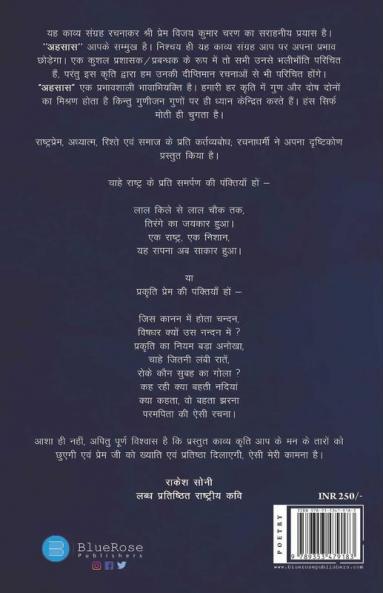 यह काव्य संग्रह रचनाकर श्री प्रेम विजय कुमार चरण का सराहनीय प्रयास है।
"अहसास" आपके सम्मुख है। निश्चय ही यह काव्य संग्रह आप पर अपना प्रभाव
छोड़ेगा। एक कुशल प्रशासक/प्रबन्धक के रूप में तो सभी उनसे भलीभाँति परिचित
हैं, परंतु इस कृति द्वारा हम उनकी दीप्तिमान रचनाओं से भी परिचित होंगे।
"अहसास" एक प्रभावशाली भावाभिव्यक्ति है। हमारी हर कृति में गुण और दोष दोनों
का मिश्रण होता है किन्तु गुणीजन गुणों पर ही ध्यान केन्द्रित करते हैं। हंस सिर्फ
मोती ही चुगता है।
राष्ट्रप्रेम, अध्यात्म, रिश्ते एवं समाज के प्रति कर्तव्यबोध; रचनाधर्मी ने अपना दृष्टिकोण
प्रस्तुत किया है।
चाहे राष्ट्र के प्रति समर्पण की पंक्तियाँ हों –
लाल किले से लाल चौक तक,
तिरंगे का जयकार हुआ।
एक राष्ट्र, एक निशान,
यह सपना अब साकार हुआ।
या
प्रकृति प्रेम की पंक्तियाँ हों –
जिस कानन में होता चन्दन,
विषधर क्यों उस नन्दन में ?
प्रकृति का नियम बड़ा अनोखा,
चाहे जितनी लंबी रातें,
रोके कौन सुबह का गोला ?
कह रही क्या बहती नदियां
क्या कहता, वो बहता झरना
परमपिता की ऐसी रचना।
आशा ही नहीं, अपितु पूर्ण विश्वास है कि प्रस्तुत काव्य कृति आप के मन के तारों को
छुएगी एवं प्रेम जी को ख्याति एवं प्रतिष्ठा दिलाएगी, ऐसी मेरी कामना है।
राकेश सोनी
लब्ध प्रतिष्ठित राष्ट्रीय कवि
INR 250/-
POETRY
9 789353 479183
BlueRose
Publishers
www.bluerosepublishers.com